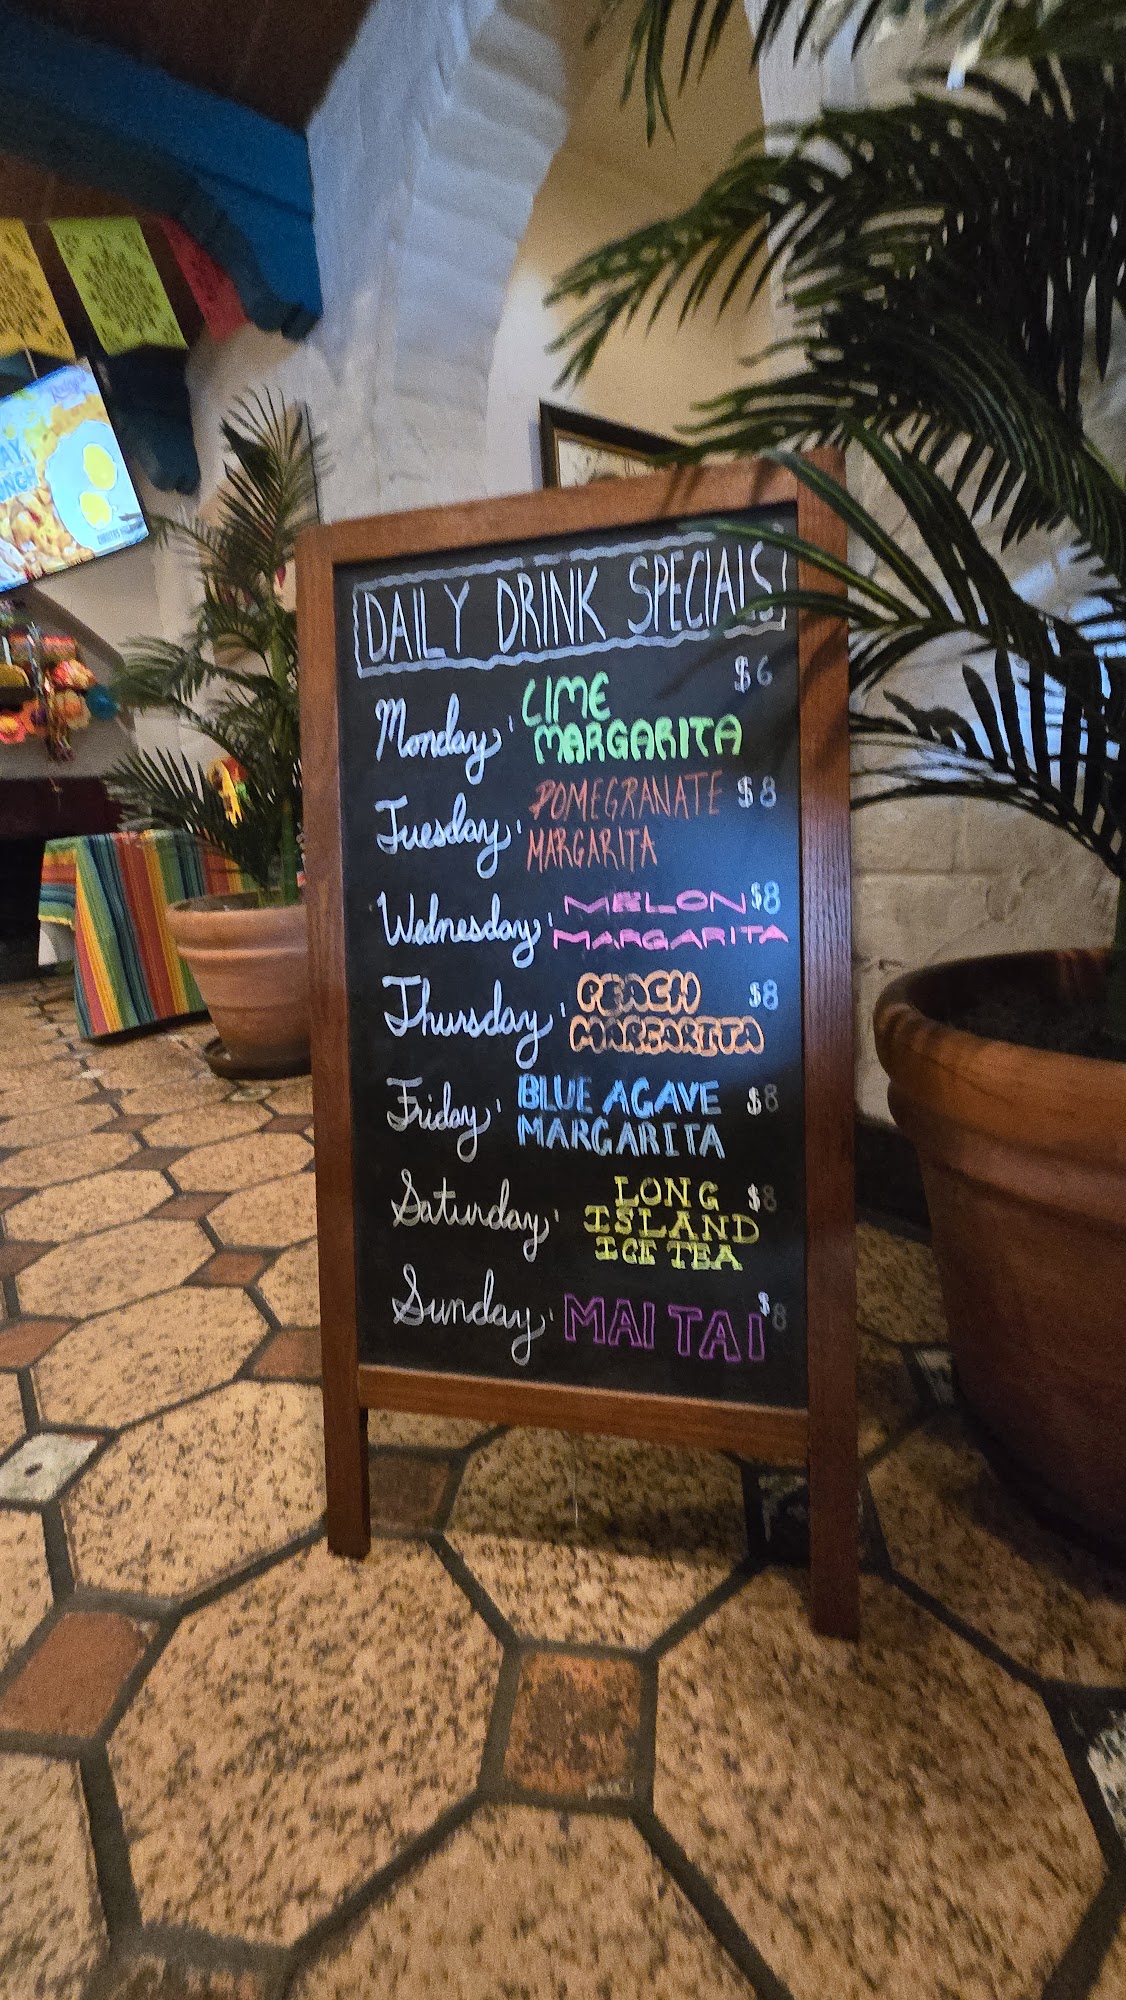 DAILY DRINK SPECIALS
Monday: LIME $6
MARGARITA
Tuesday: POMEGRANATE $8
MARGARITA
Wednesday: MELON $8
MARGARITA
Thursday: PEACH $8
MARGARITA
Friday: BLUE AGAVE $8
MARGARITA
Saturday: LONG $8
ISLAND
ICE TEA
Sunday: MAI TAI $8